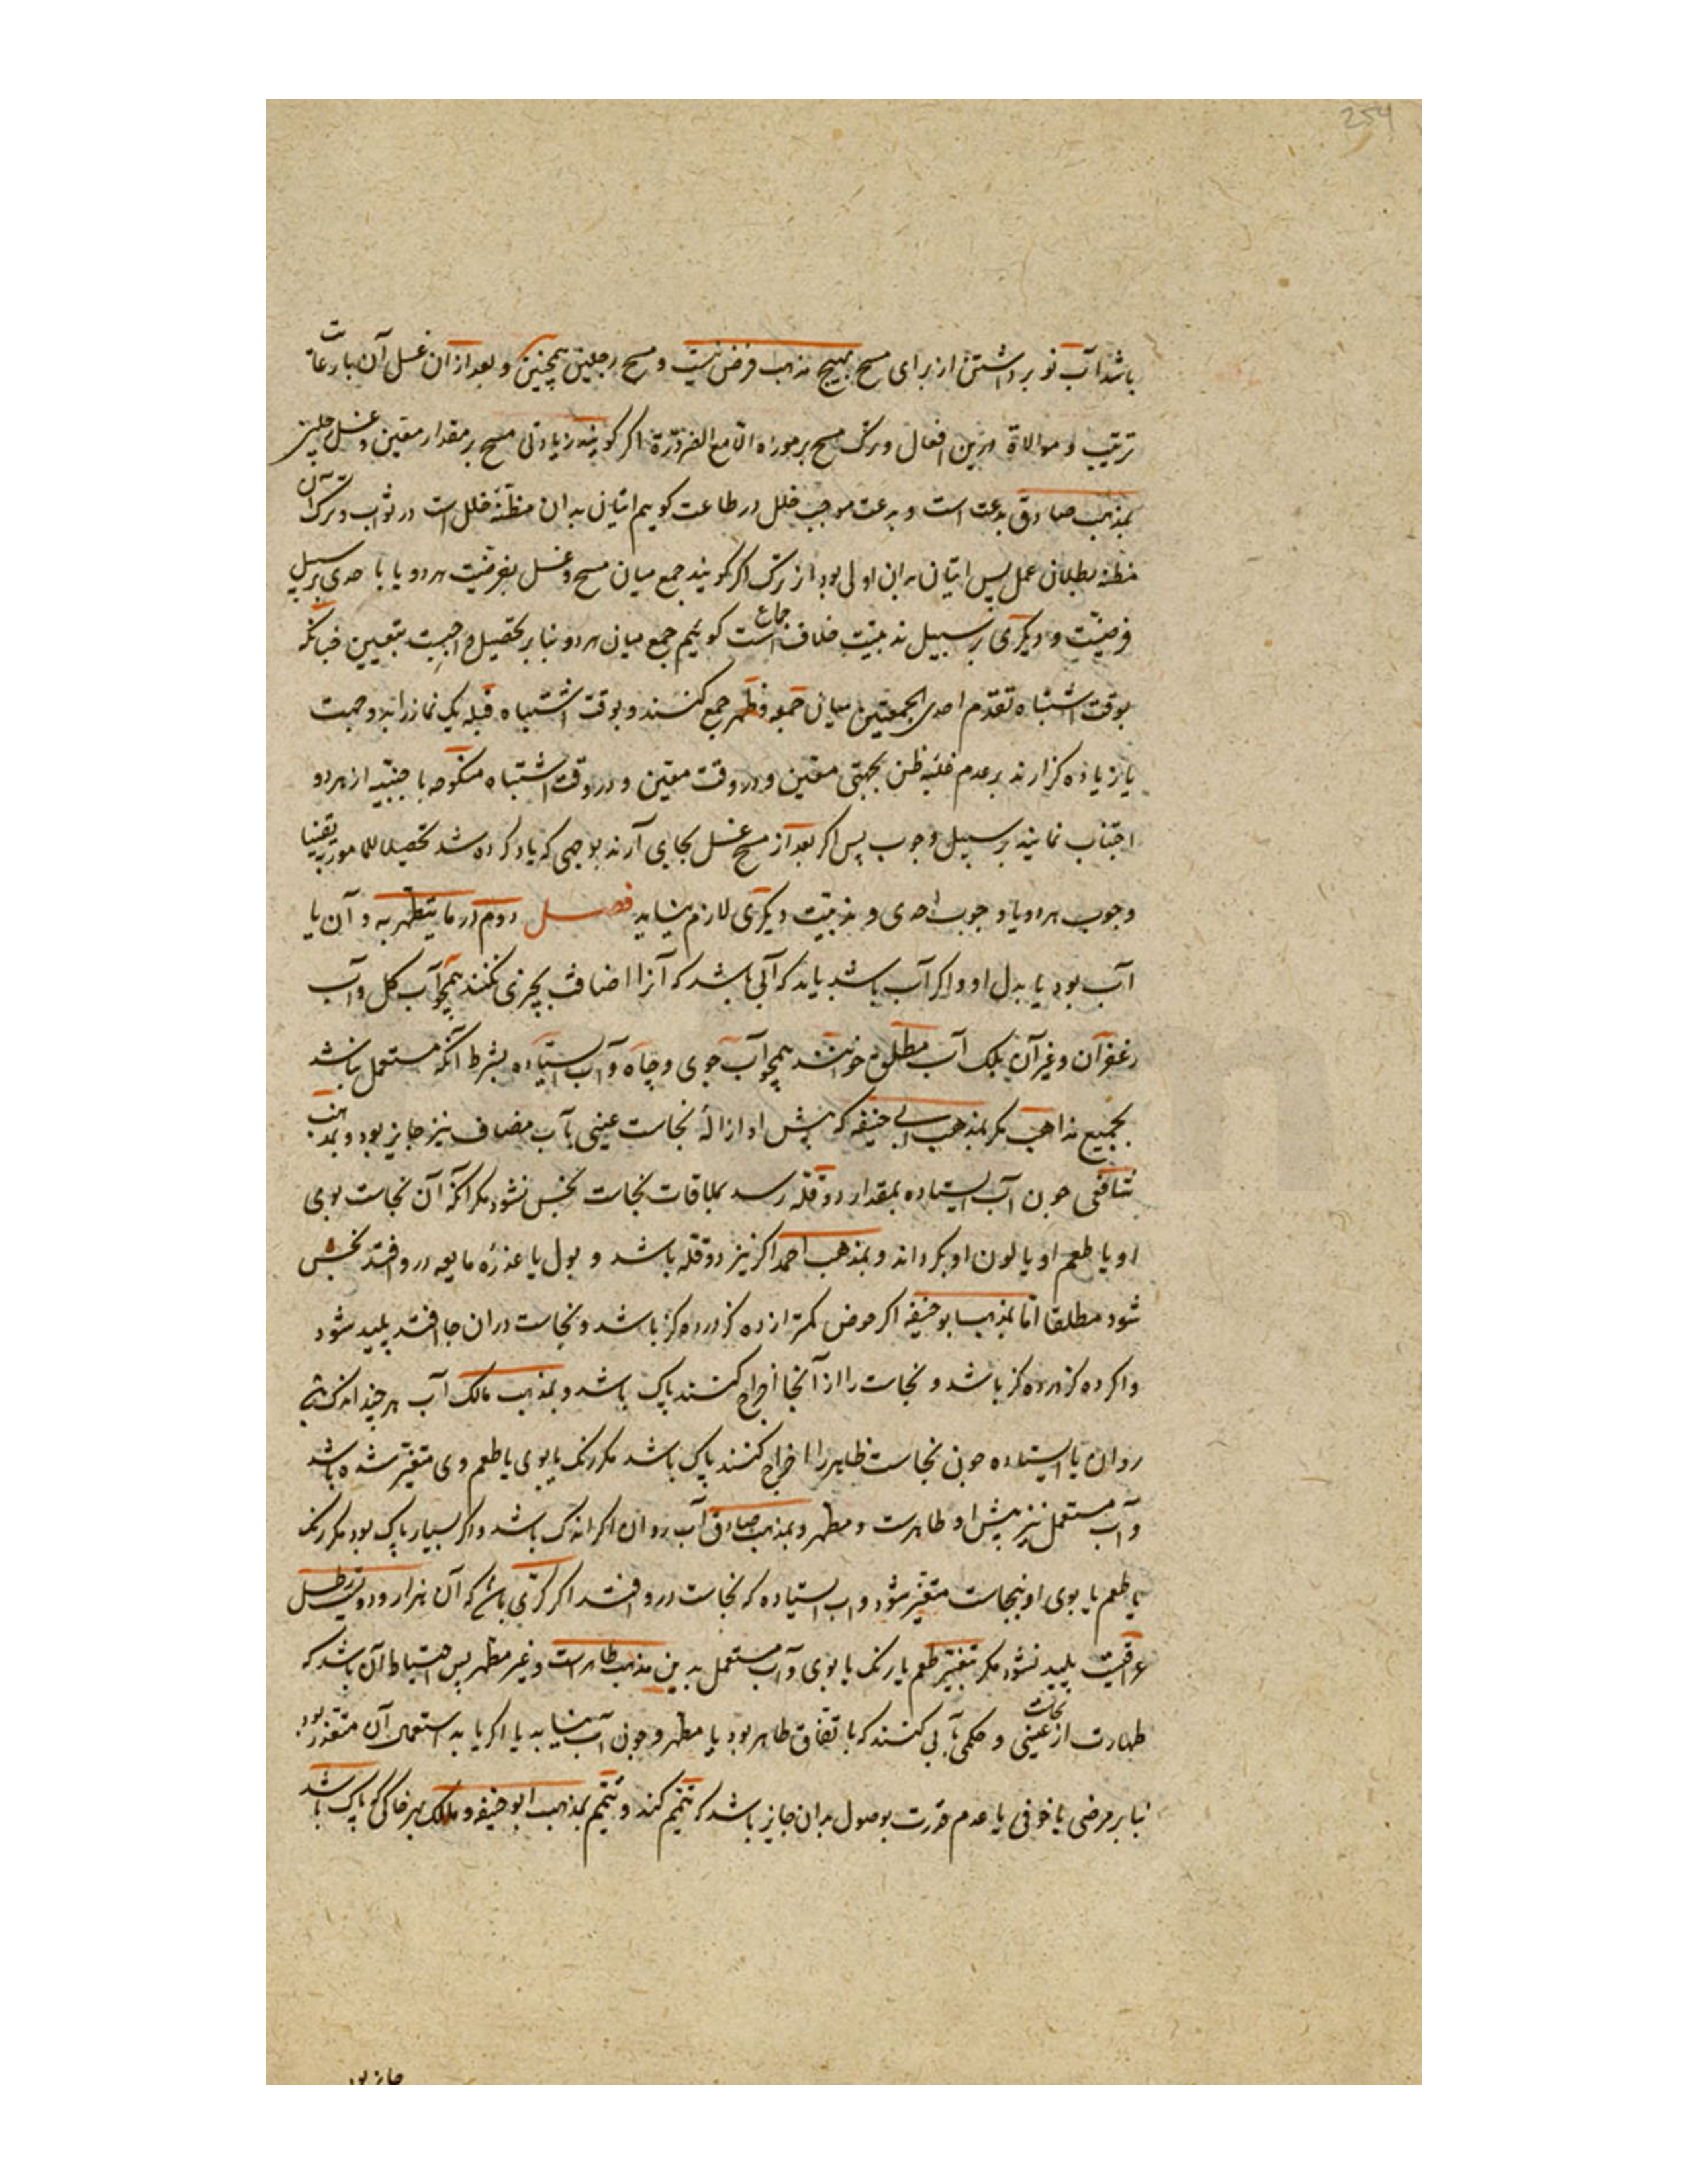 254
باشد آب نو برداشتن از برای مسح بهیچ مذهب فرض نیست و مسح رجلین همچنین و بعد از ان غسل آن با رعایت
ترتیب و موالاة درین افعال و ترک مسح بر موزه الا مع الضرورة اکر کویند زیادتی مسح بر مقدار معین و غسل رجلین
بمذهب صادق بدعت است و بدعت موجب خلل در طاعت کوییم اتیان به ان مظنه خلل است در ثواب و ترک آن
مظنه بطلان عمل پس اتیان به ان اولی بود از ترک اکر کویند جمع میان مسح و غسل بفرضیت هر دو یا با حدی بر سبیل
فرضیت و دیکری بر سبیل ندبیت خلاف اجماع است کوییم جمع میان هر دو بنا بر تحصیل واجبیت بتعیین چنانکه
بوقت اشتباه تقدم احدی الجمعتین میان جمعه و ظهر جمع کنند و بوقت اشتباه قبله یک نماز را بدو جهت
یا زیاده کزارند بر عدم غلبه ظن بجهتی معین و در وقت معین و در وقت اشتباه منکوحه با جنبیه از هر دو
اجتناب نمایند بر سبیل وجوب پس اکر بعد از مسح غسل بجای آرند بوجهی که یاد کرده شد تحصیلا للمامور به یقینا
وجوب هر دو یا وجوب احدی و ندبیت دیکری لازم نیاید فصل دوم در ما یتطهر به و آن یا
آب بود یا بدل او و اکر آب باشد باید که آبی باشد که آنرا اضافت بچیزی نکنند همچو آب کل و آب
زعفران و غیر آن بلک آب مطلق خوانند همچو آب جوی و چاه و آب ایستاده بشرط آنکه مستعمل نباشد
بجمیع مذاهب مکر بمذهب ابی حنیفه که پیش او ازالهٔ نجاست عینی بآب مضاف نیز جایز بود و بمذهب
شافعی چون آب ایستاده بمقدار دو قله رسد بملاقات نجاست نجس نشود مکر آنکه آن نجاست بوی
او یا طعم او یا لون او بکرداند و بمذهب احمد اکر نیز دو قله باشد و بول یا عذرهٔ مایعه در و افتد نجس
شود مطلقا اما بمذهب ابو حنیفه اکر حوض کمتر از ده کز در ده کز باشد و نجاست در ان جا افتد پلید شود
و اکر ده کز در ده کز باشد و نجاست را از آنجا اخراج کنند پاک باشد و بمذهب مالک آب هر چند اندک باشد
روان یا ایستاده چون نجاست ظاهر را اخراج کنند پاک باشد مکر رنک یا بوی یا طعم وی متغیر شده باشد
و آب مستعمل نیز پیش او طاهرست و مطهر و بمذهب صادق آب روان اکر اندک باشد و اکر بسیار پاک بود مکر رنک
یا طعم یا بوی او بنجاست متغیر شود و اب ایستاده که نجاست در و افتد اکر کری باشد که آن هزار و دویست رطل
عراقیت پلید نشود مکر بتغییر طعم یا رنک یا بوی و آب مستعمل بدین مذهب طاهر است و غیر مطهر پس احتیاط آن باشد که
طهارت از نجاست عینی و حکمی بآبی کنند که باتفاق طاهر بود یا مطهر و چون آب نیابد یا اکر یابد استعمال آن متعذر بود
بنا بر مرضی یا خوفی یا عدم قدرت بوصول بدان جایز باشد که تیمم کند و تیمم بمذهب ابو حنیفه و مالک بهر خاکی که پاک باشد
جایز بود